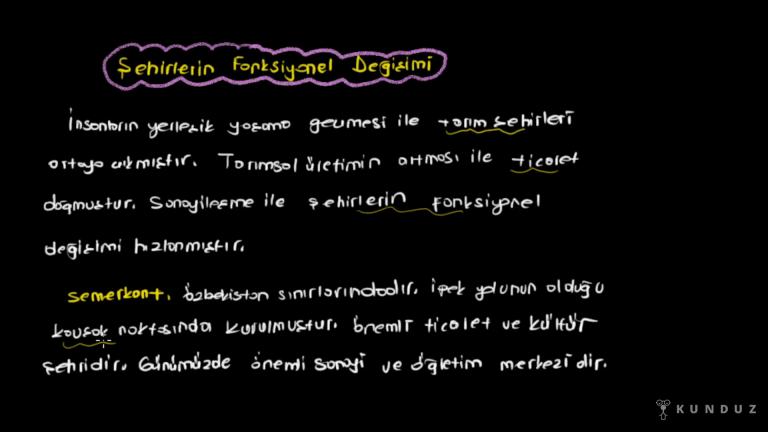 Şehirlerin Fonksiyonel Değişimi
İnsanların yerleşik yaşama geçmesi ile tarım şehirleri
ortaya çıkmıştır. Tarımsal üretimin artması ile ticaret
doğmuştur. Sanayileşme ile şehirlerin fonksiyonel
değişimi hızlanmıştır.
Semerkant, özbekistan sınırlarındadır. İpek yolunun olduğu
kavşak noktasında kurulmuştur. önemli ticaret ve kültür
şehridir. Günümüzde önemli sanayi ve öğretim merkezidir.
KUNDUZ